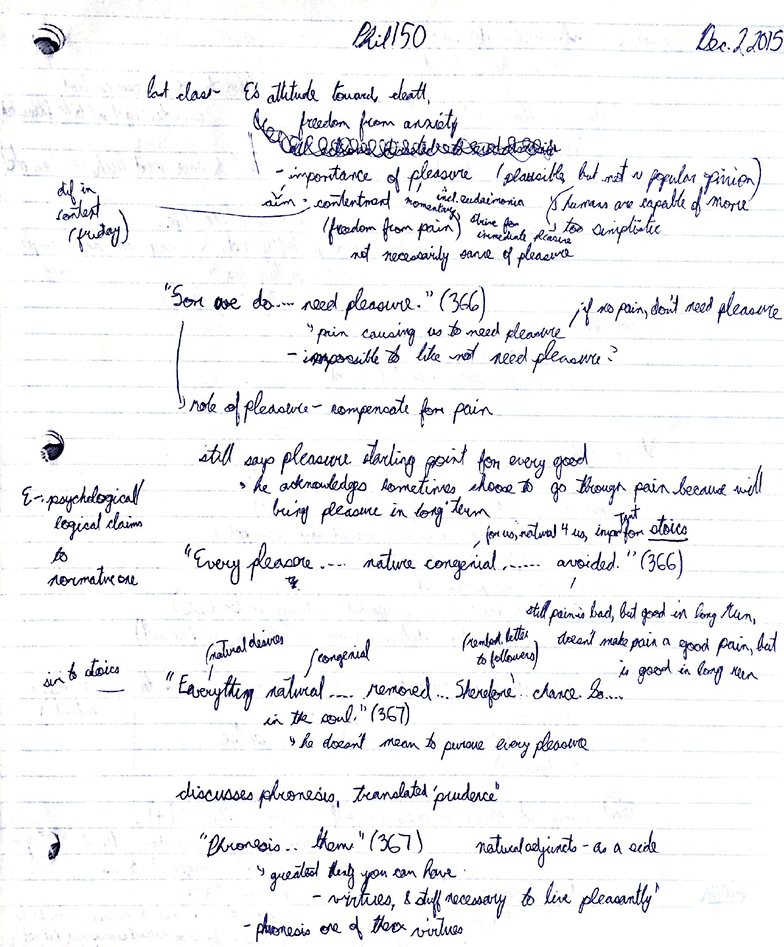 Phil 150
Dec. 2, 2015
last class - E's attitude toward death,
freedom from anxiety
- importance of pleasure (plausible, but not w popular opinion)
dif in
context
(friday)
aim - contentment momentary, incl. eudaimonia humans are capable of more
(freedom from pain) strive for immediate pleasure too simplistic
not necessarily sense of pleasure
"For we do.... need pleasure." (366) if no pain, don't need pleasure
pain causing us to need pleasure
- impossible to like not need pleasure?
role of pleasure - compensate for pain
still says pleasure starting point for every good
he acknowledges sometimes choose to go through pain because will
bring pleasure in long term
E-. psychological/
logical claims
to
normative one
for us, natural 4 us, import for stoics
"Every pleasure .... nature congenial ...... avoided." (366)
still pain is bad, but good in long run,
doesn't make pain a good pain, but
is good in long run
natural desires
congenial
(rememb. letter
to followers)
sim to stoics
"Everything natural .... removed... Therefore! chance. So....
in the soul." (367)
he doesn't mean to pursue every pleasure
discusses phronesis, translated 'prudence'
"Phronesis .. them" (367) natural adjuncts - as a side
greatest thing you can have.
- virtues, & stuff necessary to live pleasantly"
- phronesis one of these virtues